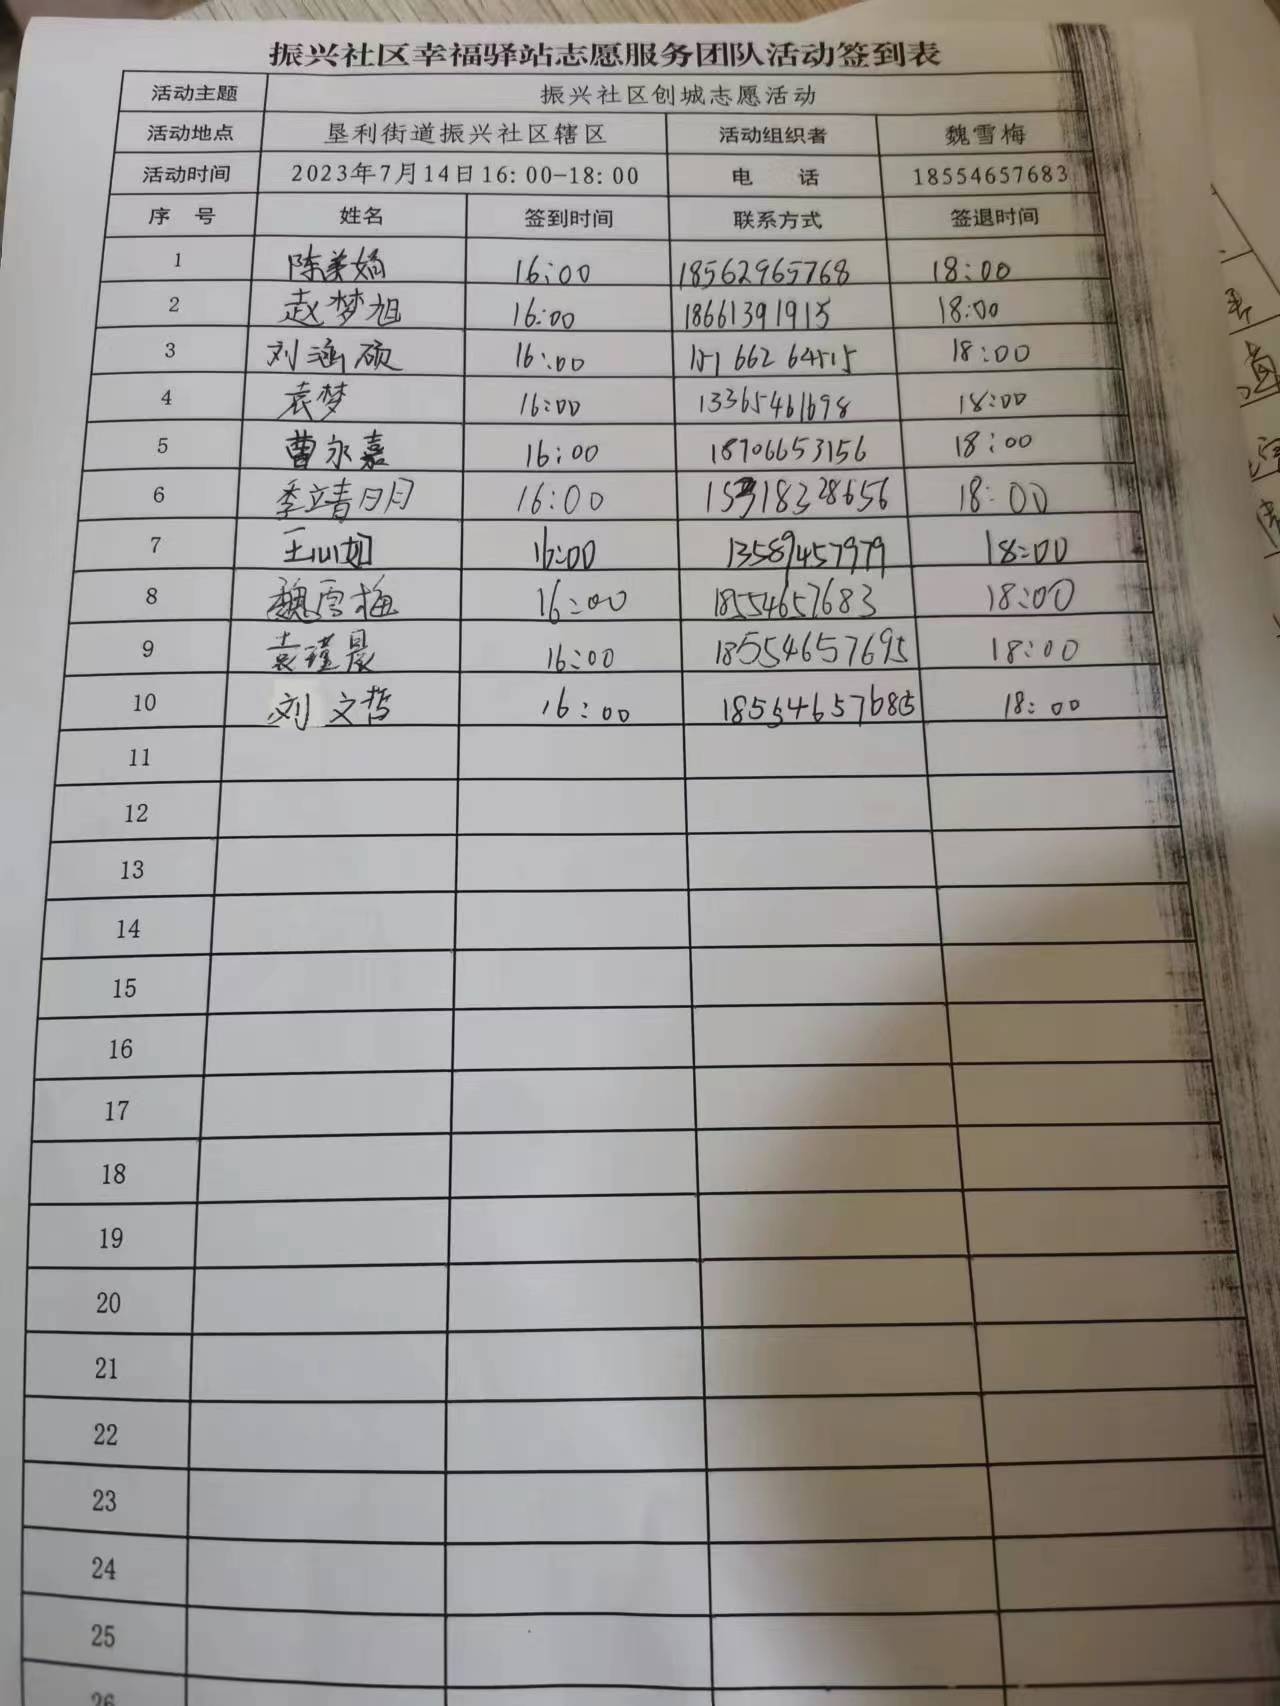 振兴社区幸福驿站志愿服务团队活动签到表
活动主题 振兴社区创城志愿活动
活动地点 垦利街道振兴社区辖区 活动组织者 魏雪梅
活动时间 2023年7月14日16:00-18:00 电 话 18554657683
序 号 姓名 签到时间 联系方式 签退时间
1 陈美娟 16:00 18562965768 18:00
2 赵梦旭 16:00 18661391915 18:00
3 刘涵硕 16:00 18:00
4 袁梦 16:00 13365461698 18:00
5 曹永嘉 16:00 18706653156 18:00
6 季靖明 16:00 18:00
7 王心如 16:00 13589457979 18:00
8 魏雪梅 16:00 18554657683 18:00
9 袁瑾晨 16:00 18554657695 18:00
10 刘文哲 16:00 18:00
11
12
13
14
15
16
17
18
19
20
21
22
23
24
25
26